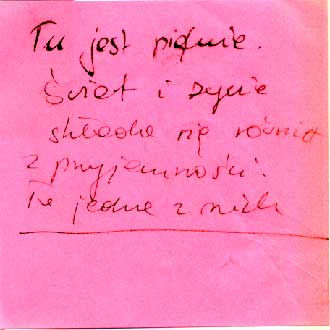 Tu jest pięknie.
Świat i życie
składa się również
z przyjemności.
Tu jedna z nich